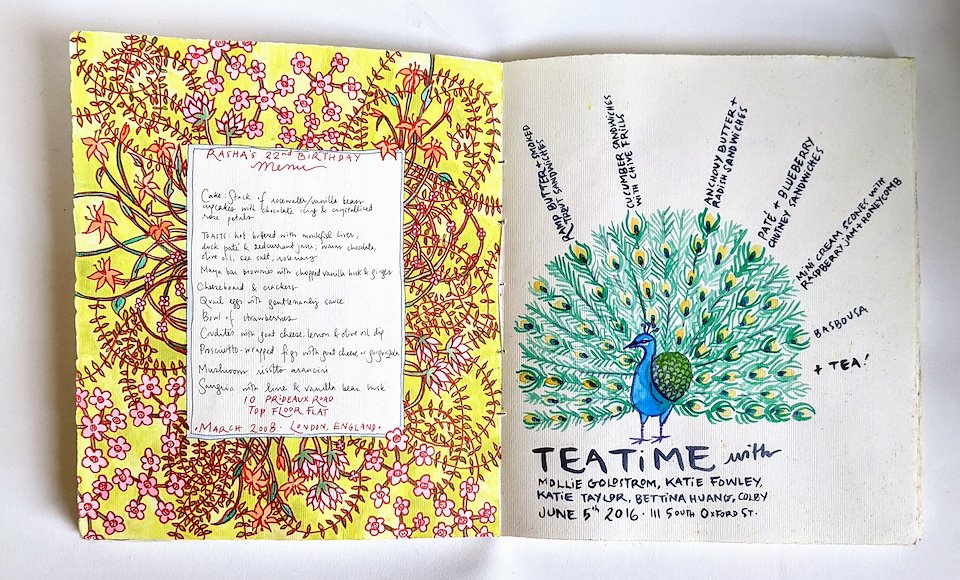 RASHA'S 22nd BIRTHDAY
Menu
Cake: Stack of rosewater/vanilla bean
cupcakes with chocolate icing & crystallised
rose petals
TOASTS: hot buttered with monkfish liver;
duck paté & redcurrant jam; warm chocolate,
olive oil, sea salt, rosemary
Maya bar brownies with chopped vanilla husk & ginger
Cheeseboard & crackers
Quail eggs with gentlemanly sauce
Bowl of strawberries
Crudités with goat cheese, lemon & olive oil dip
Prosciutto-wrapped figs with goat cheese or gorgonzola
Mushroom risotto arancini
Sangria with lime & vanilla bean husk
10 PRIDEAUX ROAD
TOP FLOOR FLAT
·MARCH 2008· LONDON, ENGLAND·
RAMP BUTTER + SMOKED
TROUT SANDWICHES
CUCUMBER SANDWICHES
WITH CHIVE FRILLS
ANCHOVY BUTTER +
RADISH SANDWICHES
PATÉ + BLUEBERRY
CHUTNEY SANDWICHES
MINI CREAM SCONES WITH
RASPBERRY JAM + HONEYCOMB
BASBOUSA
+ TEA!
TEATIME with
MOLLIE GOLDSTROM, KATIE FOWLEY,
KATIE TAYLOR, BETTINA HUANG, COLBY
JUNE 5th 2016 · 111 SOUTH OXFORD ST.